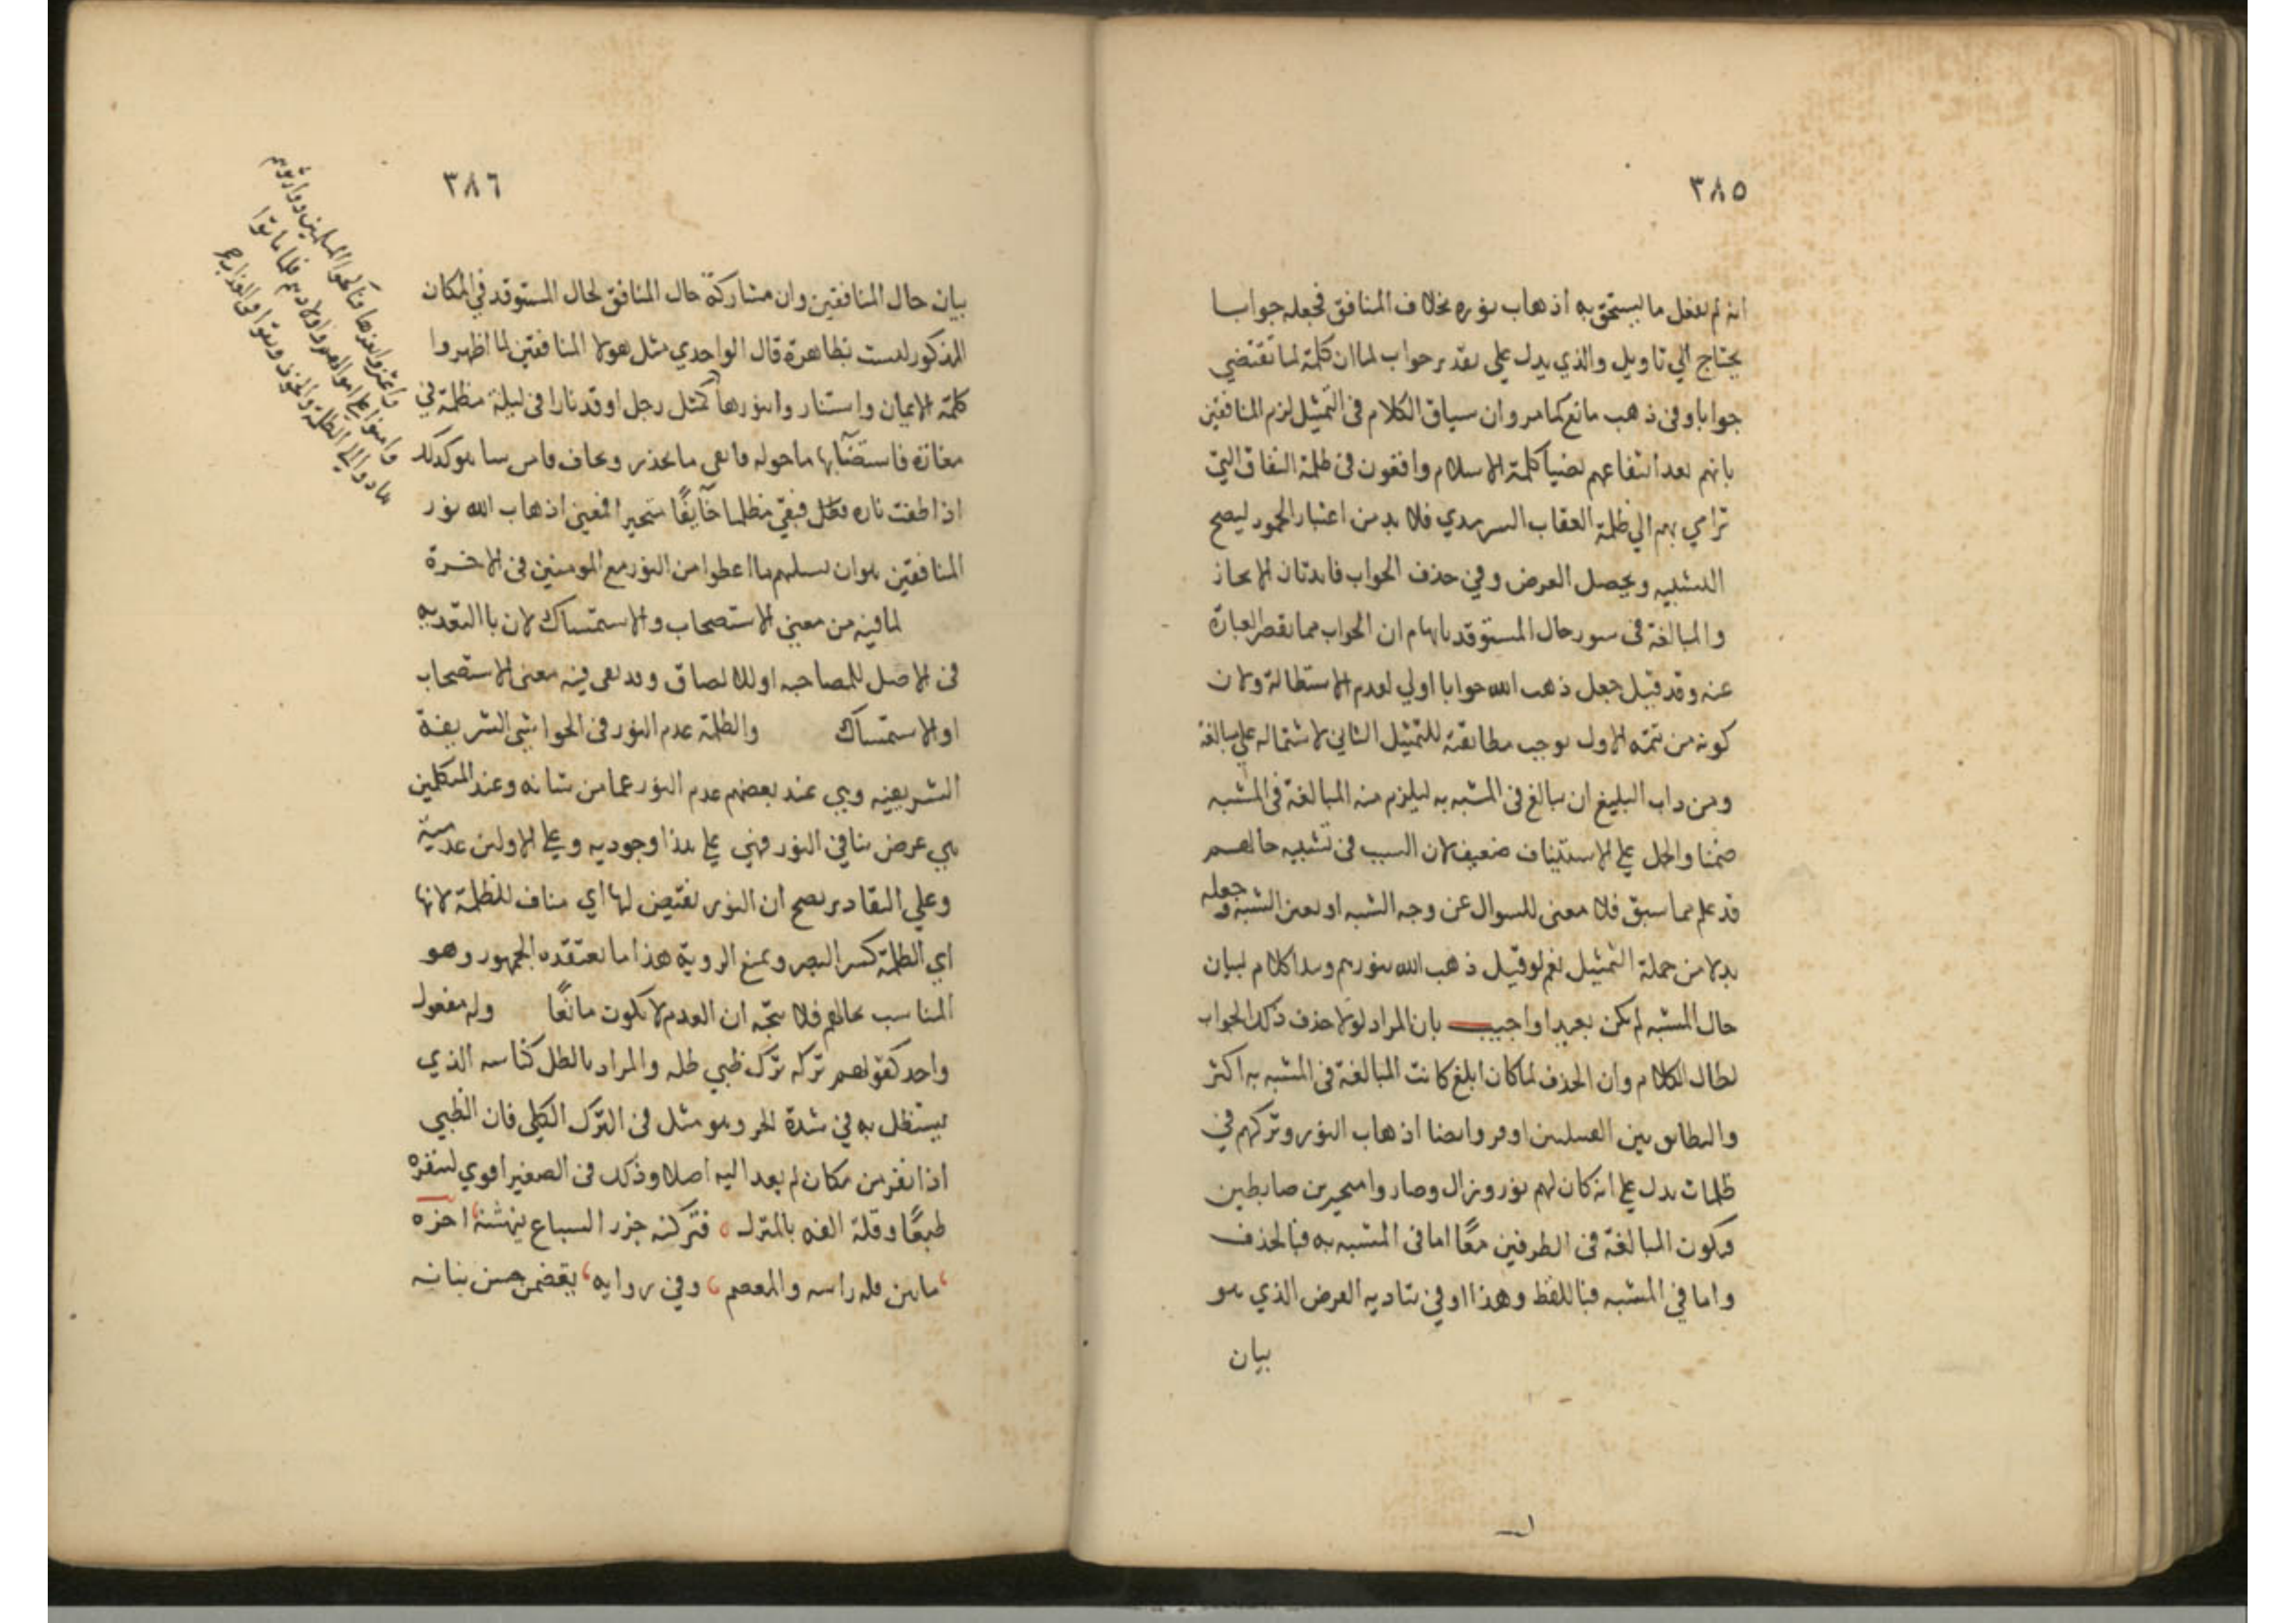 ٣٨٥
انه لم يفعل ما يستحق به اذهاب نوره بخلاف المنافق فجعله جوابا
يحتاج الي تاويل والذي يدل علي تقدير جواب لما ان كلمة لما تقتضي
جوابا وفي ذهب مانع كما مر وان سياق الكلام في التمثيل لزم المنافقين
بانهم بعد انتفاعهم بضيا كلمة الاسلام واقعون في ظلمة النفاق التي
ترامي بهم الي ظلمة العقاب السرمدي فلا بد من اعتبار الخمود ليصح
التشبيه ويحصل الغرض وفي حذف الجواب فايدتان الايجاز
والمبالغة في سور حال المستوقد بايهام ان الجواب مما تقصر العبارة
عنه وقد قيل جعل ذهب الله جوابا اولي لعدم الاستطالة ولان
كونه من تتمة الاول يوجب مطابقته للتمثيل الثاني لاشتماله علي مبالغة
ومن داب البليغ ان يبالغ في المشبه به ليلزم منه المبالغة في المشبه
ضمنا والحمل علي الاستيناف ضعيف لان السبب في تشبيه حالهم
قد علم مما سبق فلا معني للسوال عن وجه الشبه او تعين الشبه وجعله
بدلا من جملة التمثيل نعم لو قيل ذهب الله بنورهم وبدا كلام لبيان
حال المشبه لم يكن بعيدا واجيب بان المراد لولا حذف ذلك الجواب
لطال الكلام وان الحذف لما كان ابلغ كانت المبالغة في المشبه به اكثر
والتطابق بين التمثيلين اوفر وايضا اذهاب النور وتركهم في
ظلمات يدل علي انه كان لهم نور وزال وصاروا متحيرين خابطين
فيكون المبالغة في الطرفين معًا اما في المشبه به فبالحذف
واما في المشبه فباللفظ وهذا اوفي بتادية الغرض الذي هو
بيان
٣٨٦
بيان حال المنافقين وان مشاركة حال المنافق لحال المستوقد في المكان
المذكور ليست بظاهرة قال الواحدي مثل هولا المنافقين لما اظهروا
كلمة الايمان واستنار وا بنورها كمثل رجل اوقد نارا في ليلة مظلمة في
مفازة فاستضآ بها ما حوله فاتقي ما يحذر ويخاف وامن فبينا هو كذلك
اذا طفت ناره فبقي مظلما خآيفًا متحيرا فمعني اذهاب الله نور
المنافقين هو ان يسلبهم ما اعطوا من النور مع المومنين في الاخرة
لما فيه من معني الاستصحاب والاستمساك لان با التعدية
في الاصل للمصاحبه او للالصاق وقد بقي فيه معني الاستصحاب
او الاستمساك والظلمة عدم النور في الحواشي الشريفة
الشريفيه وهي عند بعضهم عدم النور عما من شانه وعند المتكلمين
هي عرض ينافي النور فهي علي هذا وجوديه وعلي الاولين عدمية
وعلي التقادير يصح ان النور نقيض لها اي مناف للظلمة لانها
اي الظلمة كسر البصر وتمنع الروية هذا ما يعتقده الجمهور وهو
المناسب بحالهم فلا يتجه ان العدم لا يكون مانعًا وله مفعول
واحد كقولهم تركه ترك ظبي ظله والمراد بالظل كناسه الذي
يستظل به في شدة الحر وهو مثل في الترك الكلي فان الظبي
اذا نفر من مكان لم يعد اليه اصلا وذلك في الصغير اقوي لتنفره
طبعًا وقلة الفه بالمنزل فتركته جزر السباع ينهشنه اخره
ما بين قلة راسه والمعصم وفي روايه يقضمن حسن بنانه
واعتزوا بعزها وناكحوا المسلمين ووارثوهم
وامنوا علي اموالهم واولادهم فلما ماتوا
عادوا الي الظلمة والخوف وبقوا في العذاب